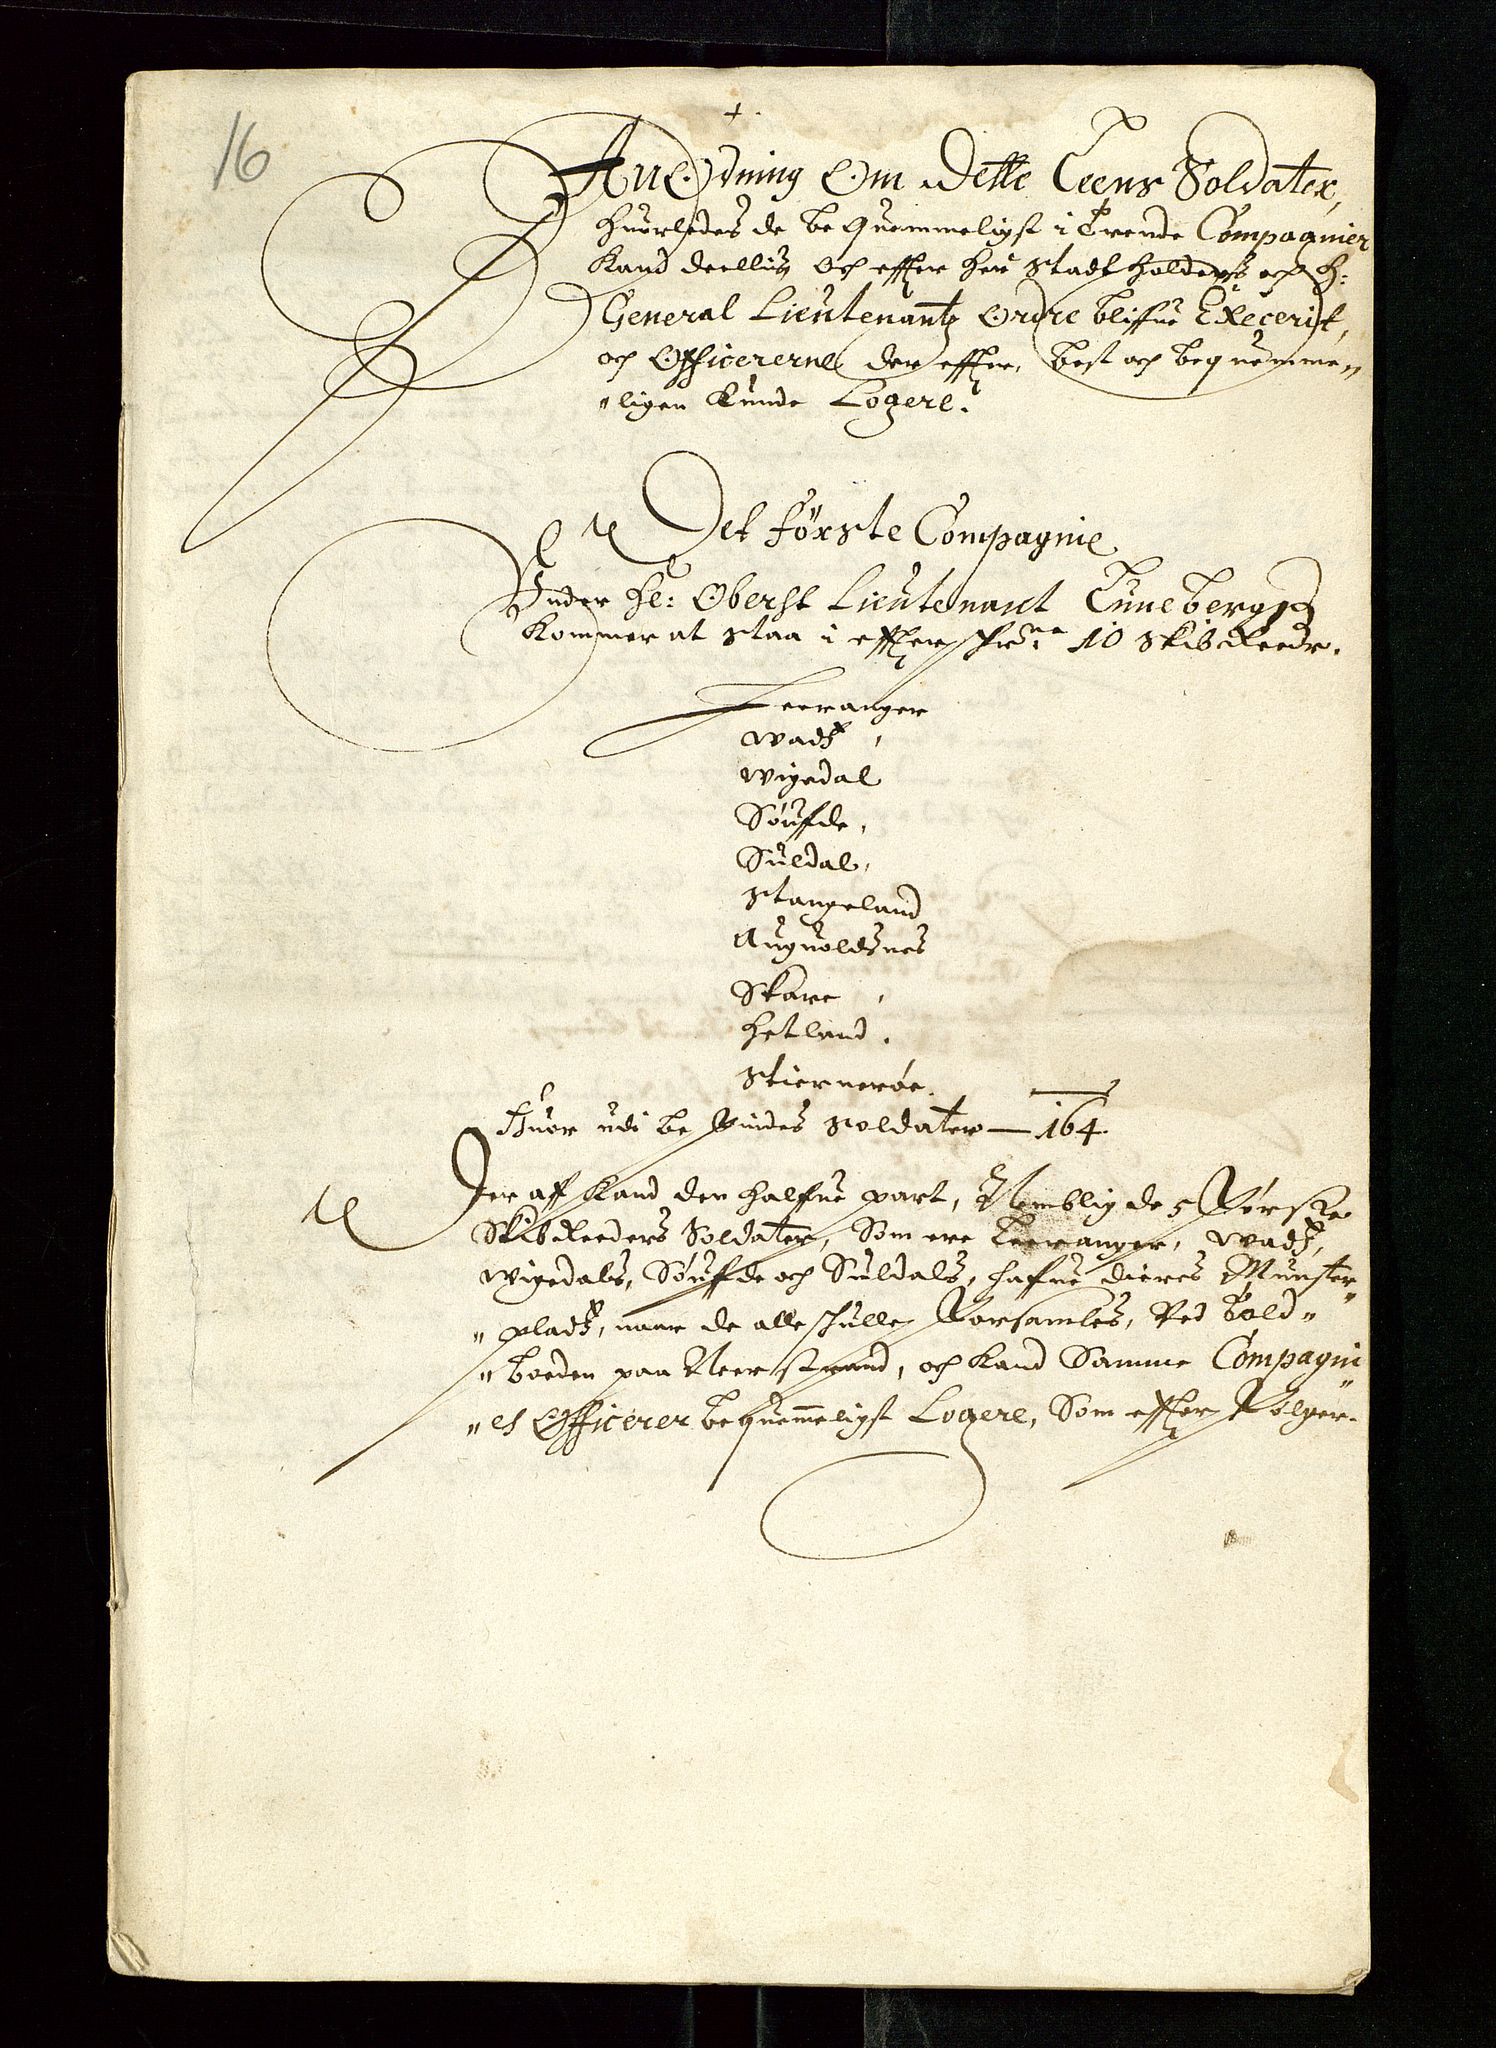 16
AnOrdning Om Dette Leens Soldater,
huorledes de beQuemmeligst i Trende Compagnier
Kand deellis, Och effter her Stadtholders och H:
General Lieutenantz Ordre bliffue Execerit,
och Officererne der effter, best och bequemme„
„ligen kunde Logere.
Det Förste Compagnie
Under He: Oberst Lieutenant
Kommer at staa i effterschr:ne 10 Skibreedr.
Leeranger
Wadtz,
Wigedal
Söuffde,
Süldal,
Stangeland
Auguoldsnes
Skare,
Hetland.
Stiernerøe.
Huor udi befindes Soldater — 164
Der aff Kand den halffue part, Nemblig de 5 Første
Skibreeders Soldater, Som ere Leeranger, Wadtz,
Wigedals, Söuffde och Süldals, haffue dieris Münster„
„pladtz, naar de alle schulle Forsamles, Ved Told„
„boeden paa Neerstrand, och Kand Samme Compagni„
„es Officerer bequemmeligst Logere, Som effter Følger.